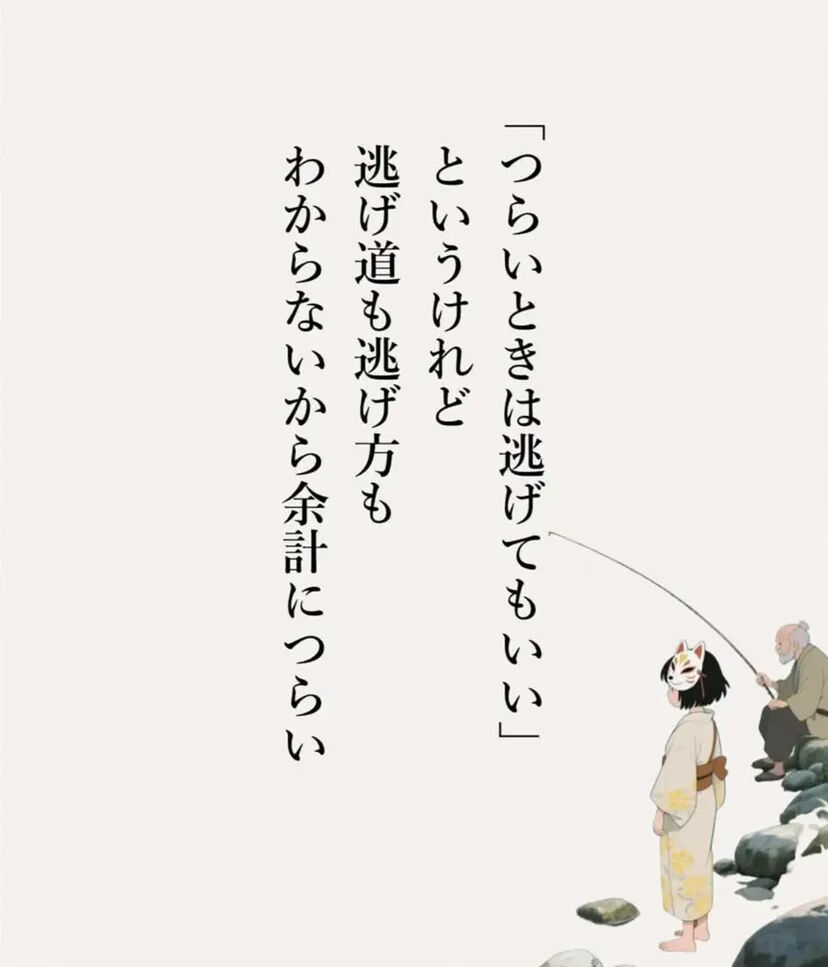 「つらいときは逃げてもいい」
というけれど
逃げ道も逃げ方も
わからないから余計につらい